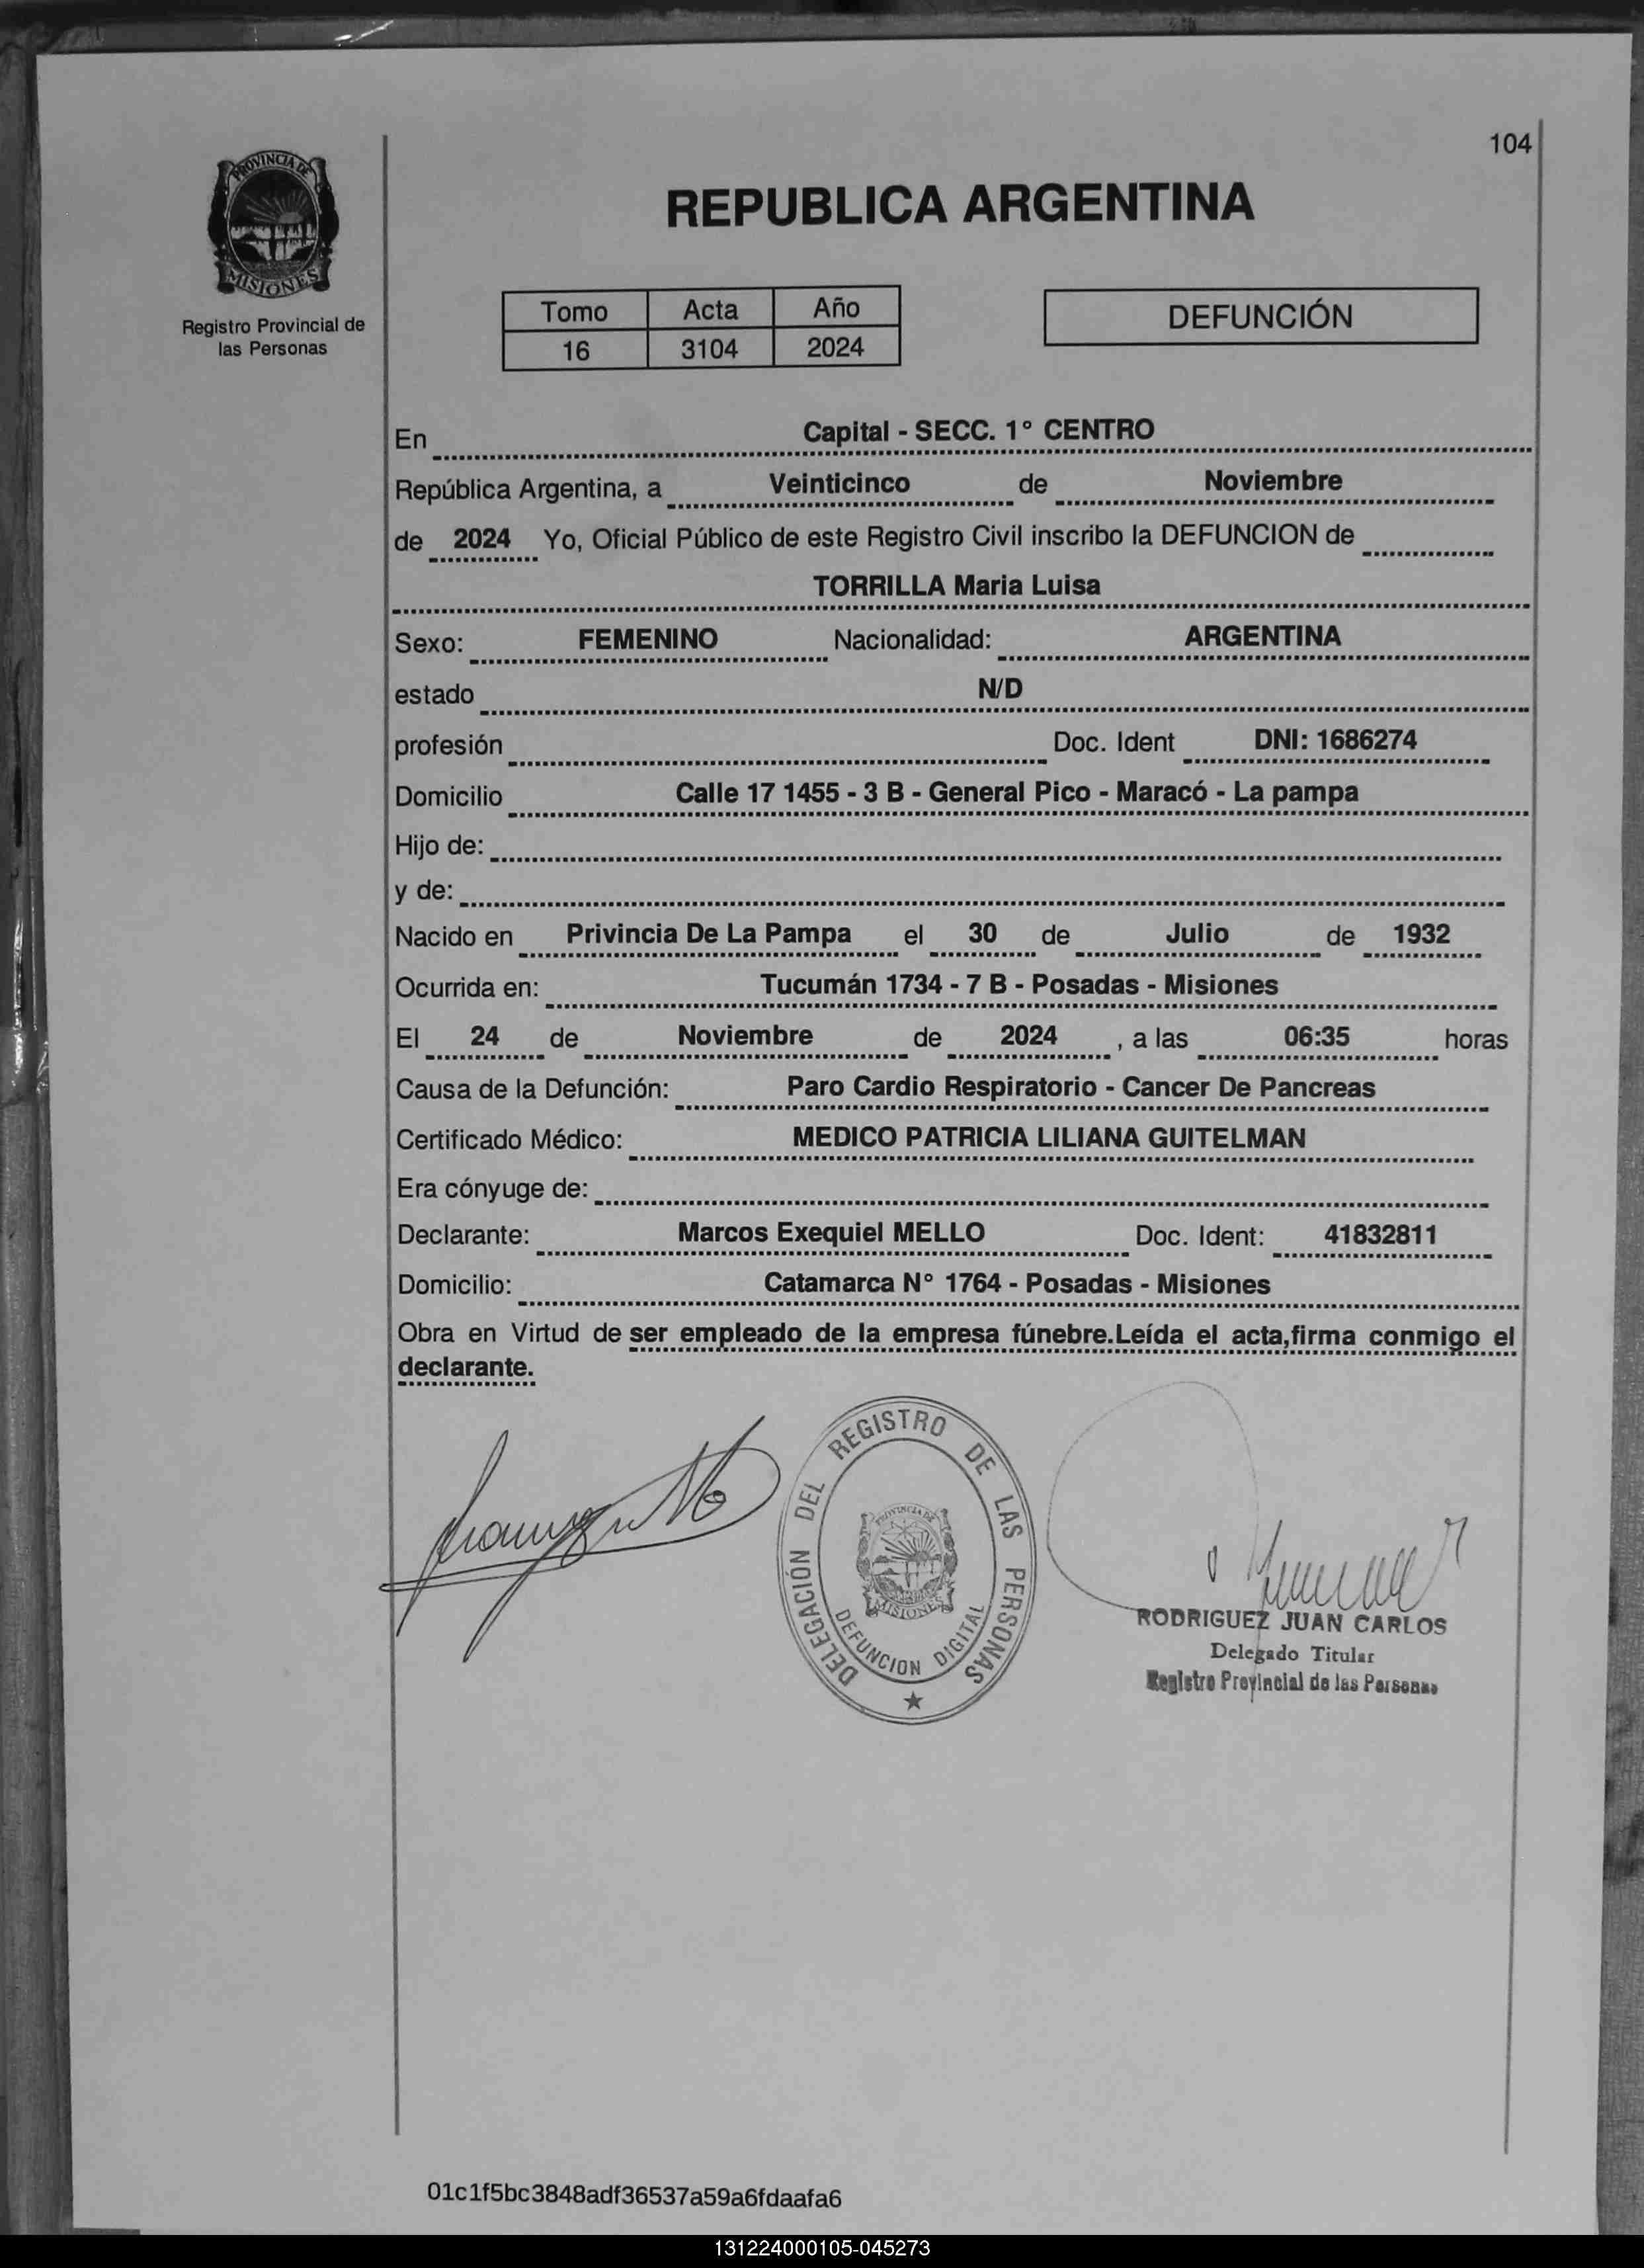 104
PROVINCIA DE
MISIONES
Registro Provincial de
las Personas
REPUBLICA ARGENTINA
Tomo Acta Año
16 3104 2024
DEFUNCIÓN
En Capital - SECC. 1° CENTRO
República Argentina, a Veinticinco de Noviembre
de 2024 Yo, Oficial Público de este Registro Civil inscribo la DEFUNCION de
TORRILLA Maria Luisa
Sexo: FEMENINO Nacionalidad: ARGENTINA
estado N/D
profesión Doc. Ident DNI: 1686274
Domicilio Calle 17 1455 - 3 B - General Pico - Maracó - La pampa
Hijo de:
y de:
Nacido en Privincia De La Pampa el 30 de Julio de 1932
Ocurrida en: Tucumán 1734 - 7 B - Posadas - Misiones
El 24 de Noviembre de 2024 , a las 06:35 horas
Causa de la Defunción: Paro Cardio Respiratorio - Cancer De Pancreas
Certificado Médico: MEDICO PATRICIA LILIANA GUITELMAN
Era cónyuge de:
Declarante: Marcos Exequiel MELLO Doc. Ident: 41832811
Domicilio: Catamarca N° 1764 - Posadas - Misiones
Obra en Virtud de ser empleado de la empresa fúnebre.Leída el acta,firma conmigo el
declarante.
DELEGACIÓN DEL REGISTRO DE LAS PERSONAS
PROVINCIA DE
MISIONES
DEFUNCION DIGITAL
RODRIGUEZ JUAN CARLOS
Delegado Titular
Registro Provincial de las Personas
01c1f5bc3848adf36537a59a6fdaafa6
131224000105-045273